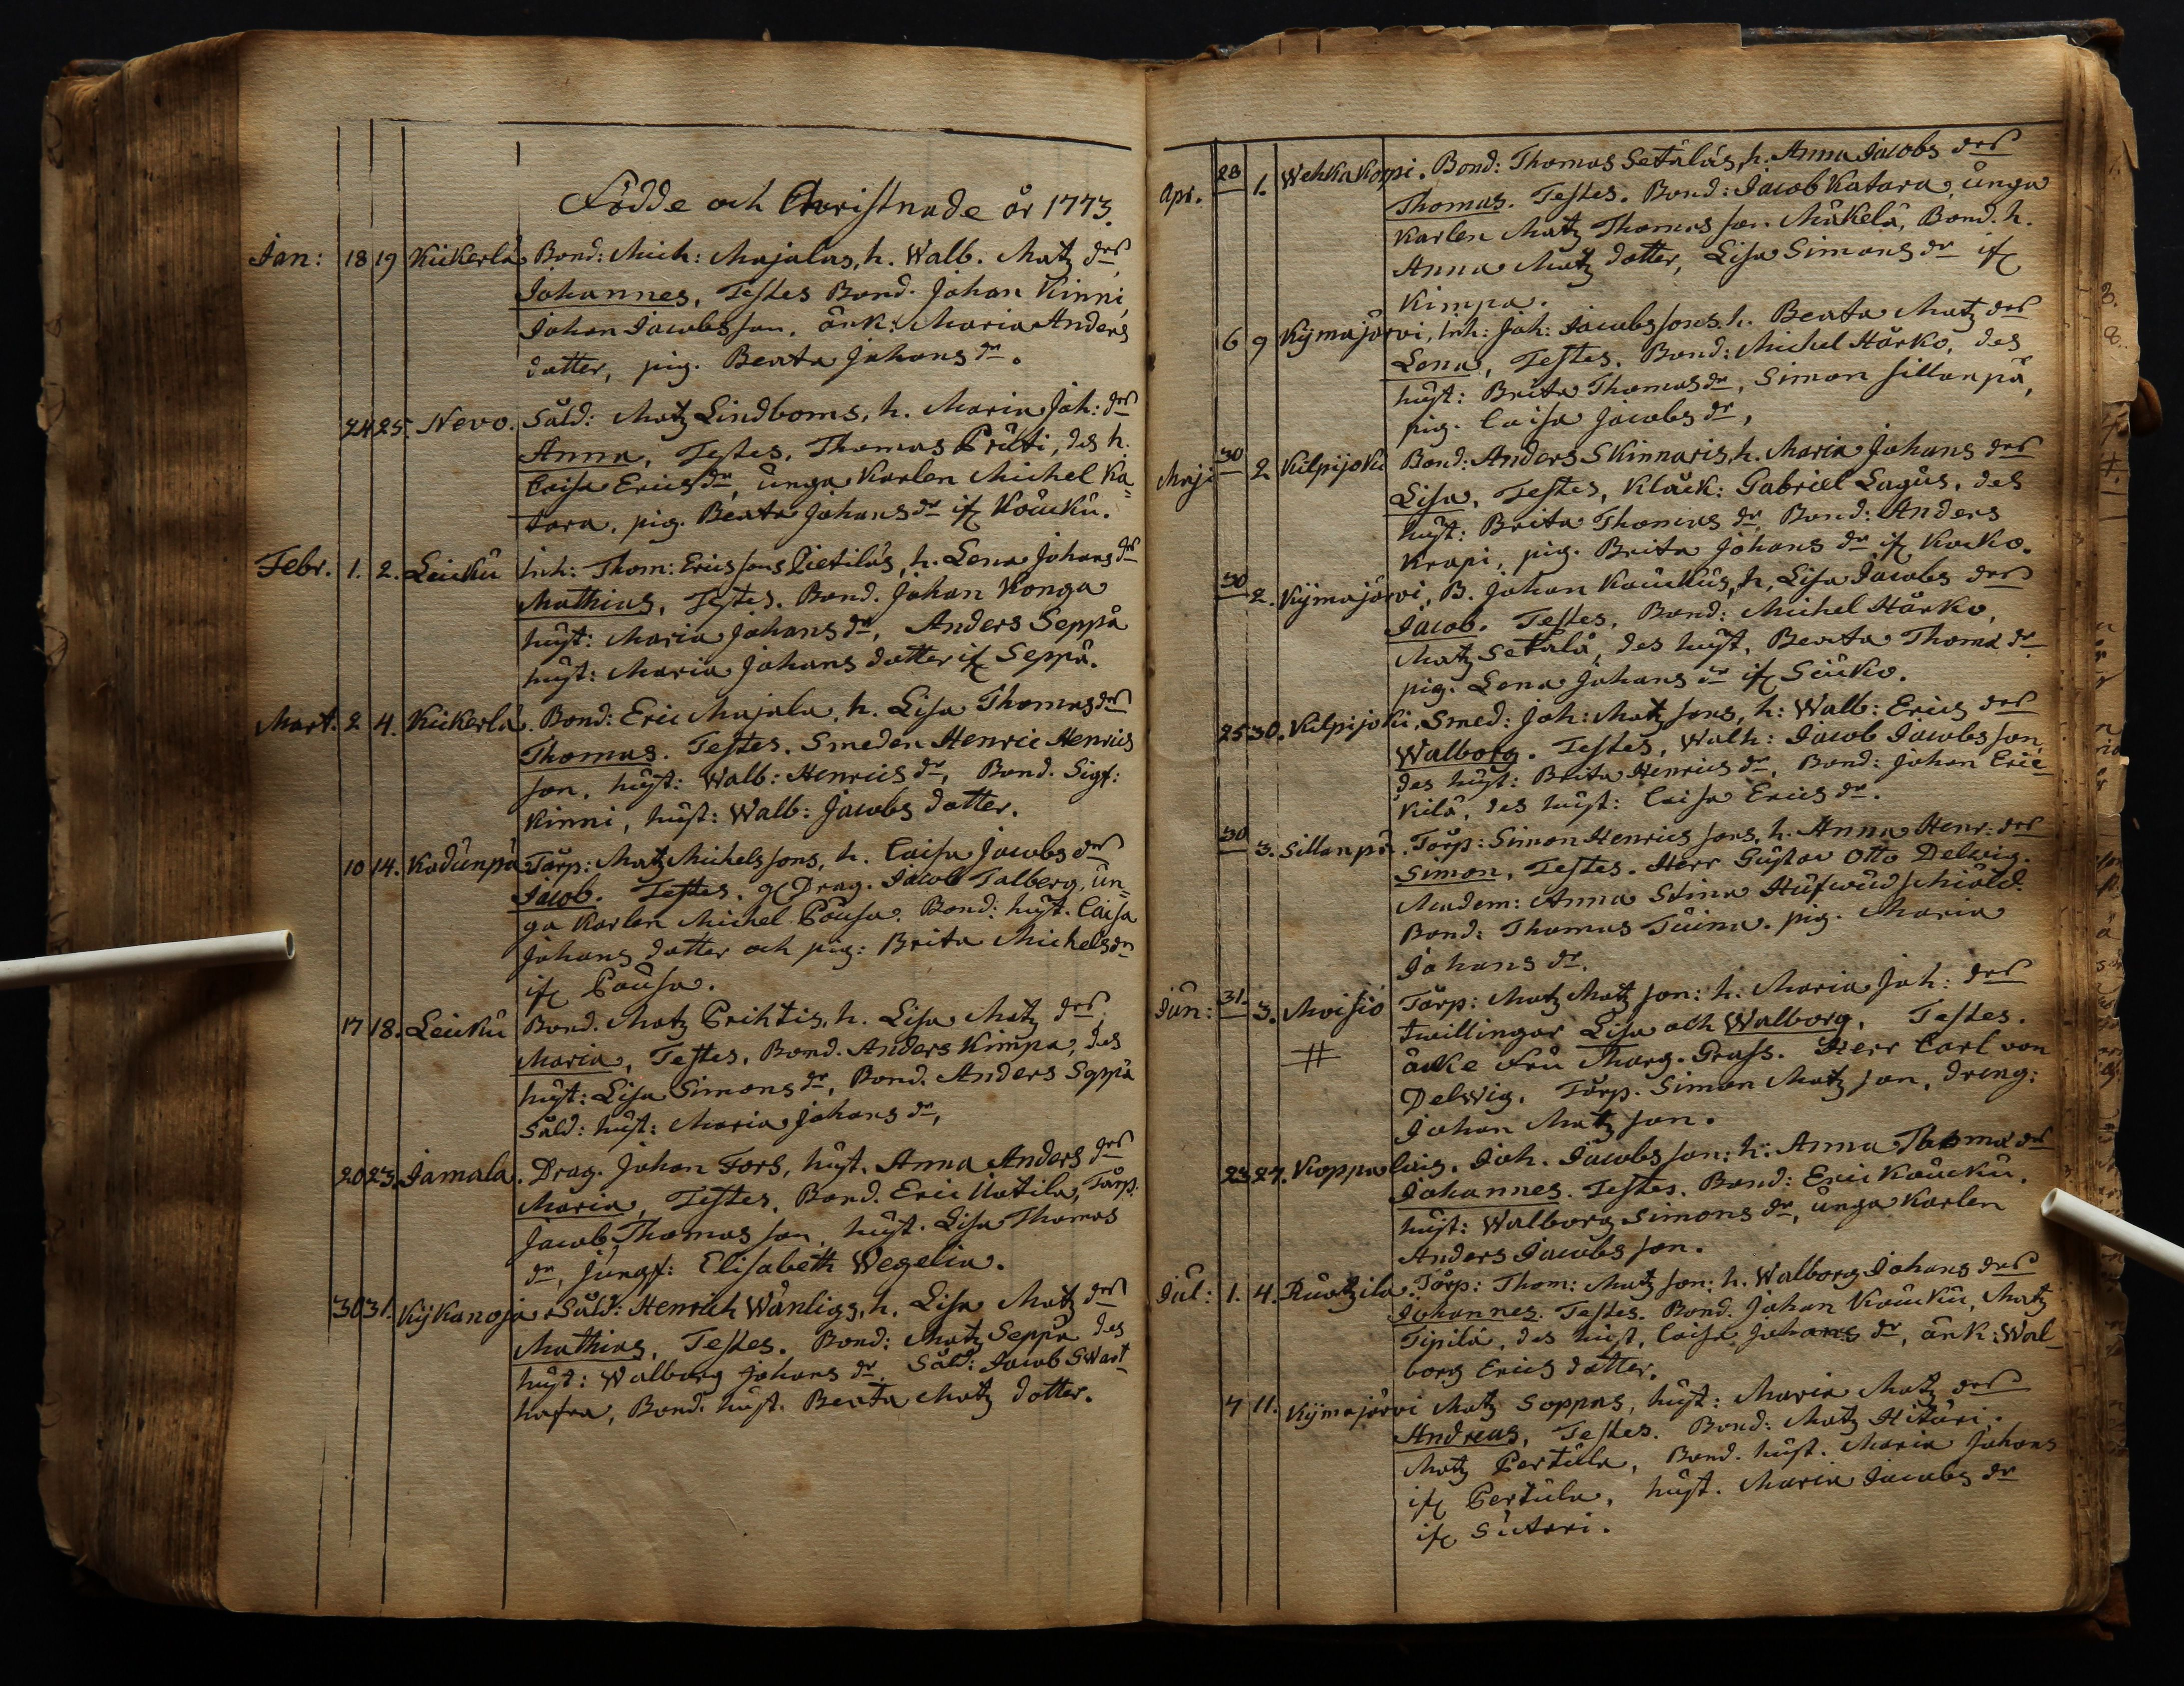 Födde och Christnade år 1773.
Jan: 18 19 Kickerlä Bond: Mich: Majalas, h. Walb. Matz drs
Johannes, Testes Bond. Johan Kinni,
Johan Jacobsson, änk: Maria Anders
dotter, pig. Beata Johans dr.
24 25. Nevo. Såld: Matz Lindboms, h. Maria Joh: drs
Anna, Testes, Thomas Prütti, des h.
Caisa Erics dr, unga Karlen Michel Ka-
tara, pig. Beata Johans dr if Kouku.
Febr. 1. 2. Leinku Inh: Thom: Ericssons Pietiläs, h. Lena Johans drs
Mathias, Testes. Bond. Johan Konga
hust: Maria Johans dr, Anders Seppä
hust: Maria Johans dotter if Seppä.
Mart. 2 4. Kickerlä. Bond: Eric Majala, h. Lisa Thomas drs
Thomas. Testes. Smeden Henric Henrics
son, hust: Walb: Henrics dr, Bond. Sigf:
Kinni, hust: Walb: Jacobs dotter.
10 14. Kadunpä Torp: Matz Michelssons, h. Caisa Jacobs dr
Jacob. Testes. Drag. Jacob Talberg, un-
ga Karlen Michel Pousa. Bond: hust. Caisa
Johans dotter och pig: Brita Michels dr
if Pousa.
17 18. Leinku Bond. Matz Prihtis, h. Lisa Matz drs
Maria, Testes, Bond. Anders Kimpa, des
hust: Lisa Simons dr, Bond. Anders Seppä
Såld: hust: Maria Johans dr,
20 23. Jamala. Drag. Johan Fors, hust. Anna Anders drs
Maria, Testes, Bond. Eric Uotila, Torp.
Jacob Thomas son, hust. Lisa Thomas
dr, jungf: Elisabeth Wegelia.
30 31. Kykanoja Såld: Henrich Wänligs, h. Lisa Matz drs
Mathias, Testes. Bond: Matz Seppä des
hust: Walborg Johans dr, Såld: Jacob Swart-
hafra, Bond. hust. Beata Matz dotter.
Apr. 28 1. Wehkakorpi. Bond: Thomas Setäläs, h. Anna Jacobs drs
Thomas. Testes. Bond: Jacob Katara, unga
Karlen Matz Thomas son Mäkelä, Bond. h.
Anna Matz dotter, Lisa Simons dr if
Kimpa.
6 9 Kymajärvi, Inh: Joh: Jacobssons h. Beata Matz drs
Lena, Testes. Bond: Michel Härko, des
hust: Brita Thomas dr, Simon Sillanpä,
pig. Caisa Jacobs dr,
Maji 30 2 Kilpijoki Bond: Anders Skinnaris, h. Maria Johans drs
Lisa, Testes, Klåck: Gabriel Lagus, des
hust: Brita Thomas dr, Bond: Anders
Krapi, pig. Brita Johans dr if Kocko.
30 2. Kymajärvi, B. Johan Kouckus, h. Lisa Jacobs drs
Jacob. Testes, Bond: Michel Härko,
Matz Setälä, des hust, Beata Thoma dr
pig. Lena Johans dr if Siuko.
25 30. Kilpijoki, Smed: Joh: Matz sons, h: Walb: Erics drs
Walborg. Testes, Walh: Jacob Jacobsson,
des hust: Brita Henrics dr, Bond: Johan Eric-
kilä, des hust: Caisa Erics dr.
30 3. Sillanpä. Torp: Simon Henrics sons, h. Anna Henr: drs
Simon, Testes. Herr Gustav Otto Delwig.
Madem: Anna Stina Hufwudschiöld.
Bond: Thomas Tuima. pig. Maria
Johans dr.
Jun: 31. 3. Moisio Torp: Matz Matz son: h. Maria Joh: drs
# twillingar Lisa och Walborg, Testes.
änke Fru Marg. Grass. Herr Carl von
Delwig. Torp. Simon Matz son, dreng:
Johan Matz son.
23 27. Koppalais. Joh. Jacobsson: h: Anna Thoma drs
Johannes. Testes. Bond: Eric Koucku.
hust: Walborg Simons dr, unga Karlen
Anders Jacobsson.
Jul: 1. 4. Ruotzila. Torp: Thom: Matz son: h. Walborg Johans drs
Johannes. Testes. Bond. Johan Koucku, Matz
Tipilä, des hust, Caisa Johans dr, änk: Wal-
borg Erics dotter.
4 11. Kymajärvi Matz Soppas, hust: Maria Matz drs
Andreas, Testes. Bond: Matz Hituri,
Matz Pertula, Bond. hust. Maria Johans
if Pertula, hust. Maria Jacobs dr
if Sutari.